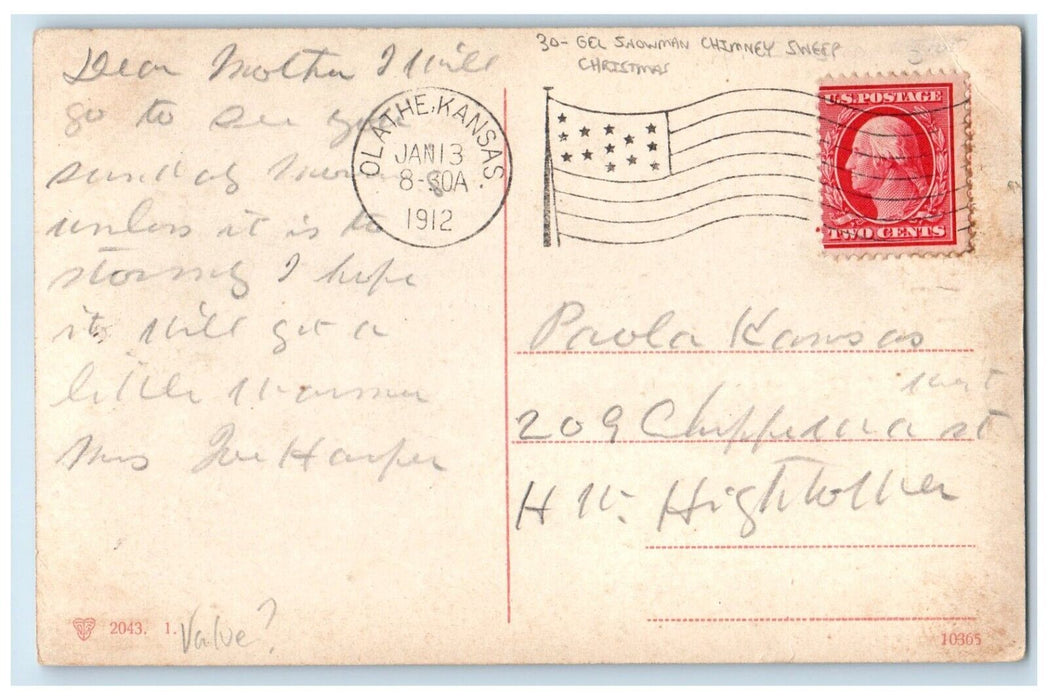 Dear Mother I will
go to see you
sunday
unless it is to
stormy I hope
it will get a
little warmer
Mrs Joe Harper
30- GEL SNOWMAN CHIMNEY SWEEP
CHRISTMAS
OLATHE, KANSAS.
JAN 13
8-30A
1912
U.S. POSTAGE
TWO CENTS
Paola Kansas
west
209 Chippewa st
H W. Hightower
2043. 1.
Value?
10365